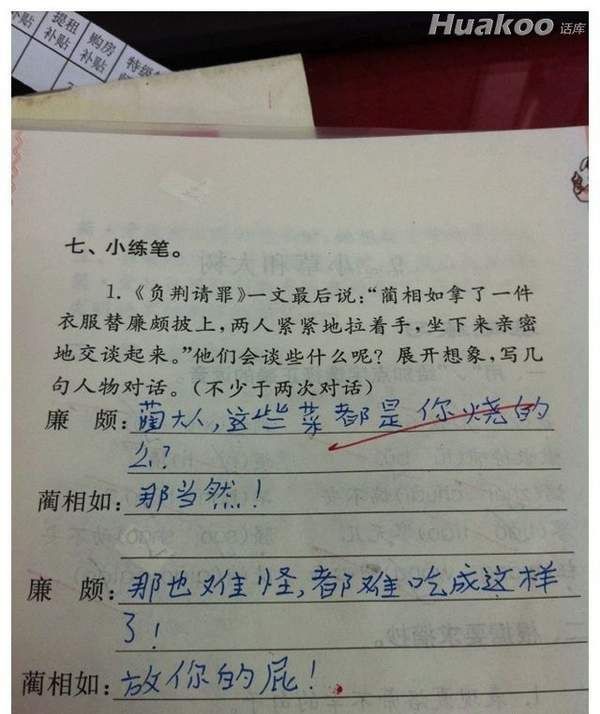 Huakoo 话库
提租
补贴
购房
补贴
特级
补贴
七、小练笔。
1.《负荆请罪》一文最后说：“蔺相如拿了一件
衣服替廉颇披上，两人紧紧地拉着手，坐下来亲密
地交谈起来。”他们会谈些什么呢？展开想象，写几
句人物对话。（不少于两次对话）
廉 颇：蔺大人，这些菜都是你烧的
么？
蔺相如：那当然！
廉 颇：那也难怪，都难吃成这样
了！
蔺相如：放你的屁！